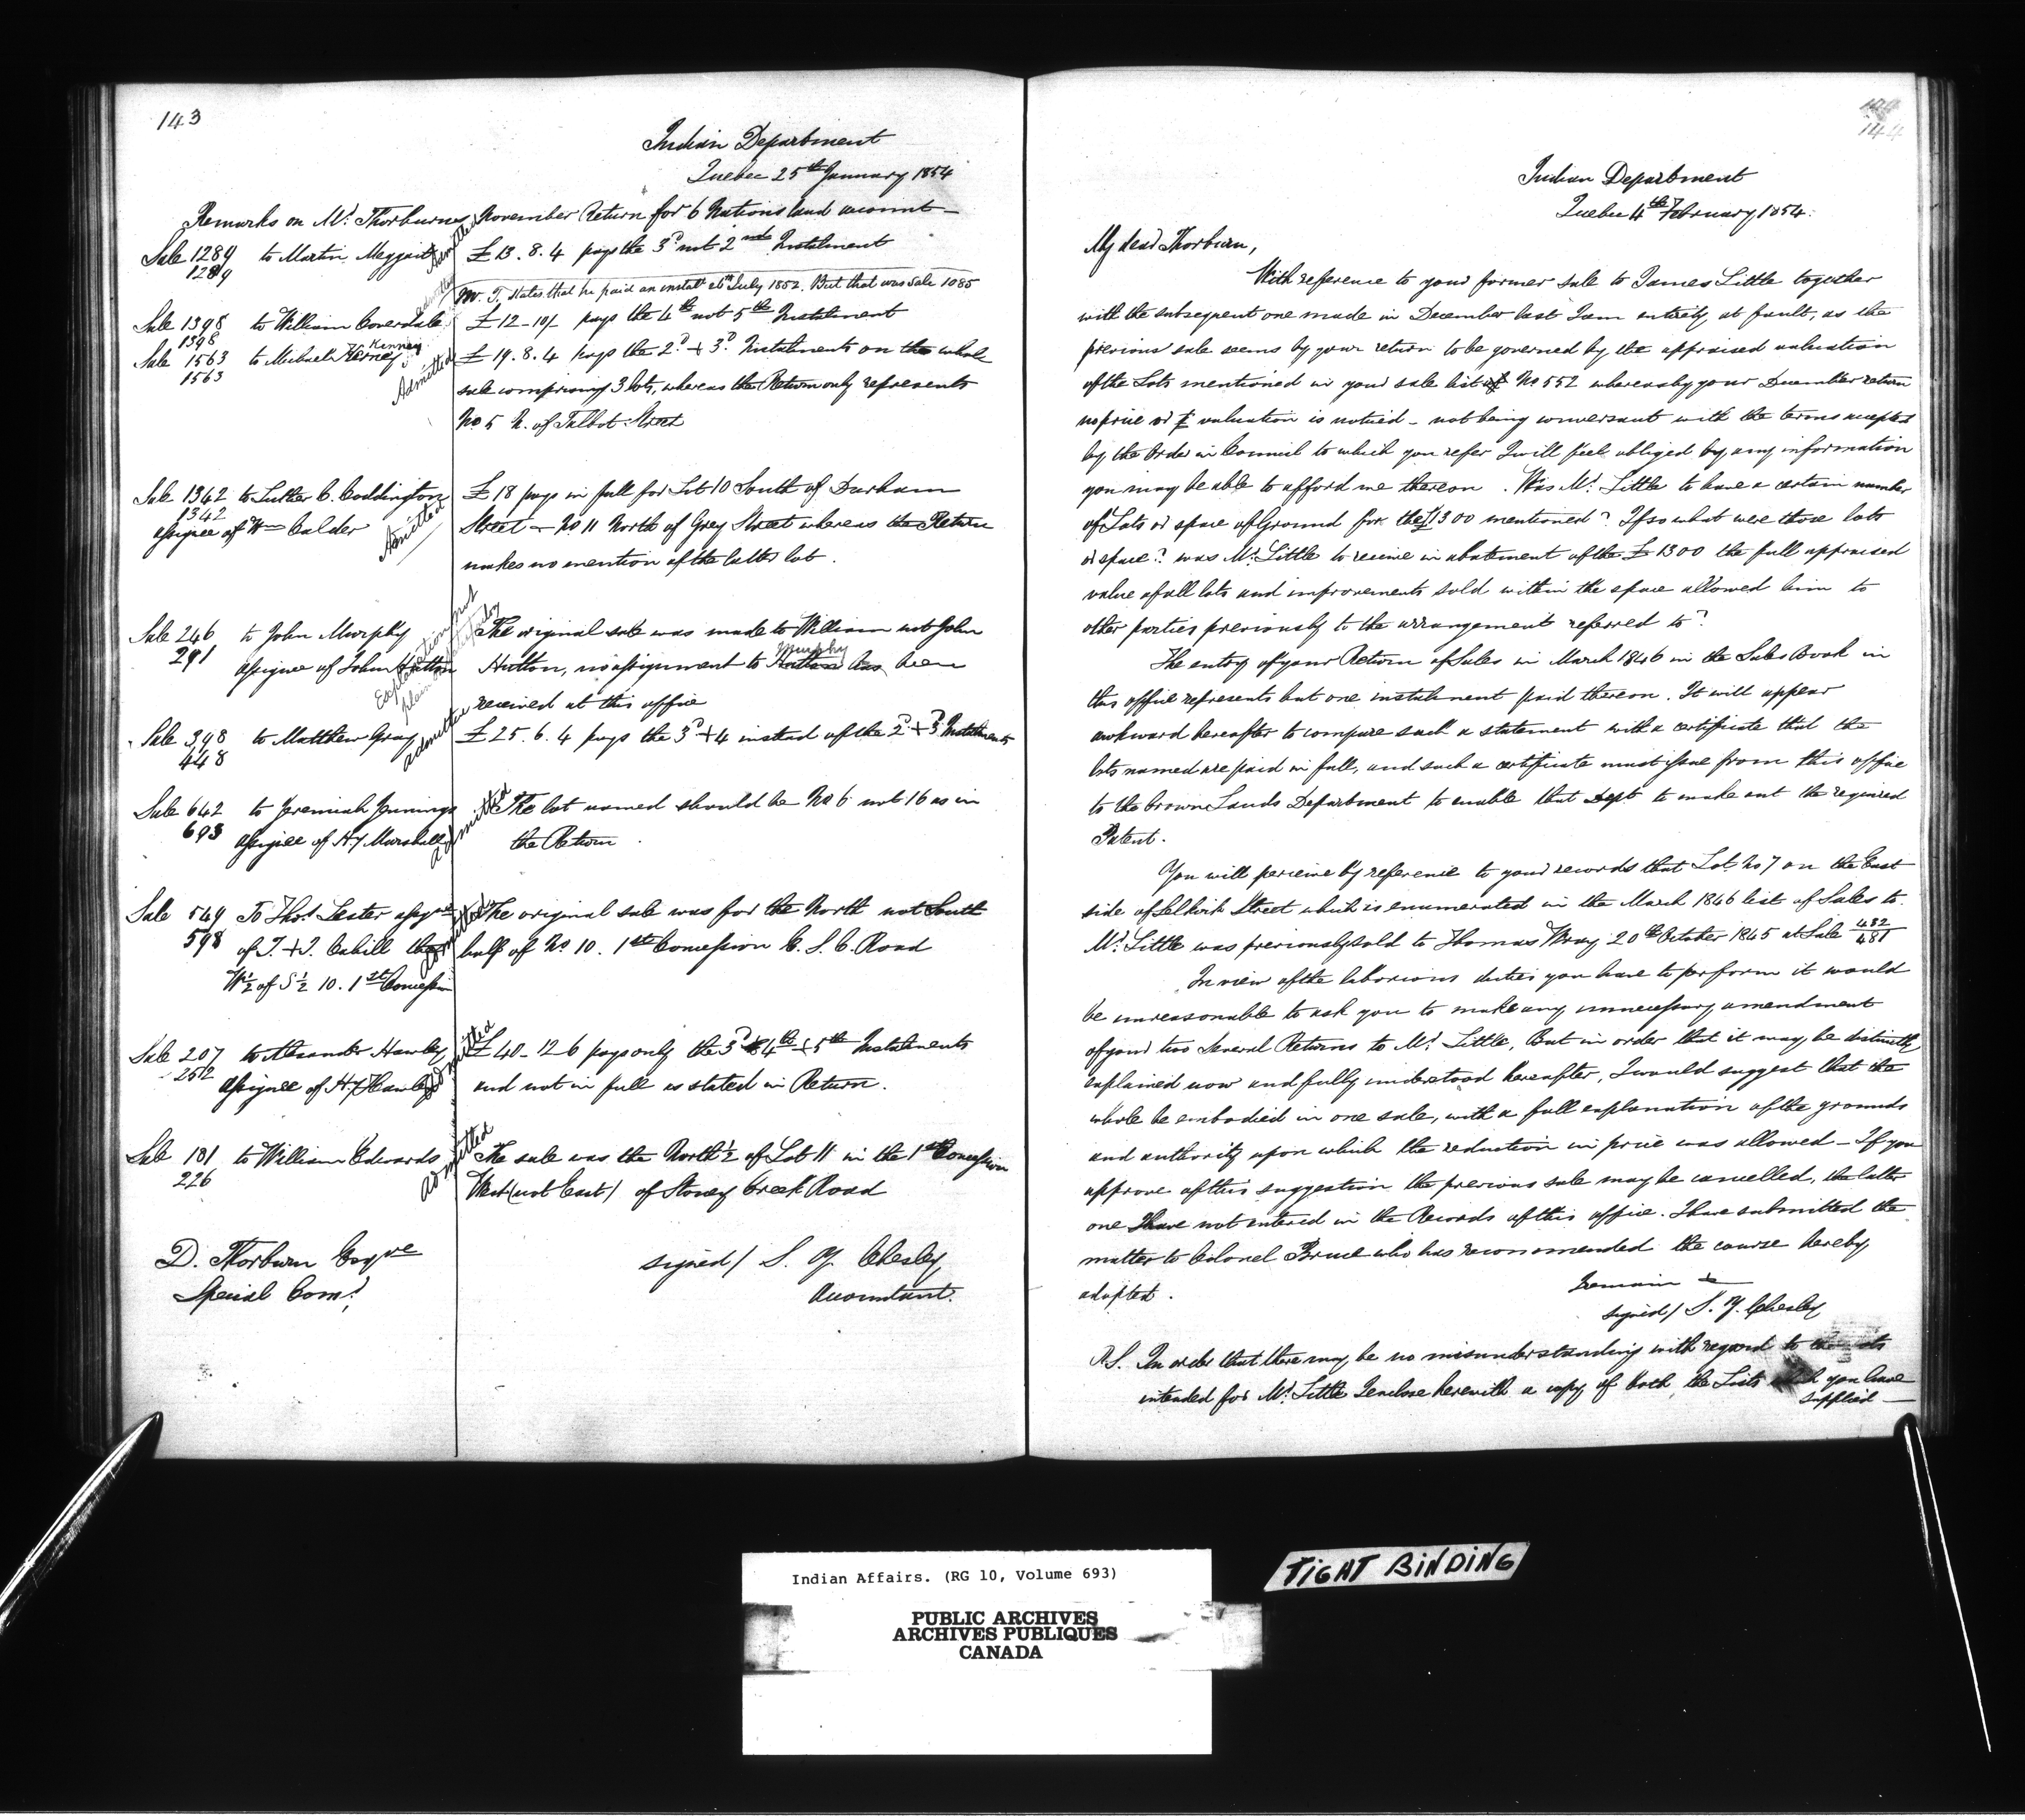 143
Indian Department
Quebec 25th January 1854
Remarks on Mr. Thorburns November Return for 6 Nations land account -
Sale 1289 to Martin Admitted £13.8.4 pays the 3d not 2nd Instalment
1289
Mr. T. states that he paid an instalt 26th July 1852. But that was Sale 1085
Sale 1398 to William Coverdale Admitted £12-10/- pays the 4th not 5th Instalment
1398
Kenney
Sale 1563 to Michael Kerney Admitted £19.8.4 pays the 2d + 3d Instalments on the whole
1563
sale comprising 3 lots, whereas the Return only represents
No 5 N. of Talbot Street
Sale 1342 to Luther C. Coddington £18 pays in full for Lot 10 South of Durham
1342
assignee of Wm Calder Admitted Street - No 11 North of Grey Street whereas the Return
makes no mention of the latter lot.
Sale 246 to John Murphy The original sale was made to William not John
291 assignee of John Hutton Explanation not Murphy
Hutton, no assignment to Hutton has been
received at this office
Sale 398 to Matthew Gray Admitted £25.6.4 pays the 3d + 4 instead of the 2d + 3d Instalments
448
Sale 642 to Jeremiah Jennings Admitted The lot named should be No 6 not 16 as in
693 assignee of Hy Marshall the Return
Sale 549 To Thos. Lester assgnee Admitted The original sale was for the North not South
598 of T. + J. Cahill the half of No 10. 1st Concession C. S. C. Road
W½ of S½ 10. 1st Concession
Sale 207 to Alexander Hawley Admitted £40-12 6 pays only the 3d 4th + 5th Instalments
252 assignee of Hy Hawley and not in full as stated in Return.
Sale 181 to William Edwards Admitted The sale was the North ½ of Lot 11 in the 1st Concession
226
West (not East) of Stoney Creek Road
D. Thorburn Esqre
Special Comr.
signed/ S. Y. Chesley
Accountant.
144
Indian Department
Quebec 4th February 1854.
My dear Thorburn,
With reference to your former sale to James Little together
with the subsequent one made in December last I am entirely at fault, as the
previous sale seems by your return to be governed by the appraised valuation
of the Lots mentioned in your sale list of No 552 whereas by your December return
no price or £ valuation is noticed - not being conversant with the terms accepted
by the Order in Council to which you refer I will feel obliged by any information
you may be able to afford me thereon. Was Mr. Little to have a certain number
of Lots or space of Ground for the £1300 mentioned? If so what were those lots
or space? was Mr. Little to receive in abatement of the £1300 the full appraised
value of all lots and improvements sold within the space allowed him to
other parties previously to the arrangement referred to?
The entry of your Return of Sales in March 1846 in the Sales Book in
this office represents but one instalment paid thereon. It will appear
awkward hereafter to compare such a statement with a certificate that the
lots named are paid in full, and such a certificate must issue from this office
to the Crown Lands Department to enable that Dept to make out the required
Patent.
You will perceive by reference to your records that Lot No 7 on the East
side of Selkirk Street which is enumerated in the March 1846 list of Sales to
Mr. Little was previously sold to Thomas Bray 20th October 1845 at Sale 432/481
In view of the laborious duties you have to perform it would
be unreasonable to ask you to make any unnecessary amendment
of your two Several Returns to Mr. Little, But in order that it may be distinctly
explained now and fully understood hereafter, I would suggest that the
whole be embodied in one sale, with a full explanation of the grounds
and authority upon which the reduction in price was allowed - If you
approve of this suggestion the previous sale may be cancelled, the latter
one I have not entered in the Records of this office. I have submitted the
matter to Colonel Bruce who has recommended the course hereby
adopted.
I remain &
signed/ S. Y. Chesley
P.S. In order that there may be no misunderstanding with regard to the lots
intended for Mr. Little I enclose herewith a copy of both the Lists which you have
supplied -
Indian Affairs. (RG 10, Volume 693)
PUBLIC ARCHIVES
ARCHIVES PUBLIQUES
CANADA
TIGHT BINDING